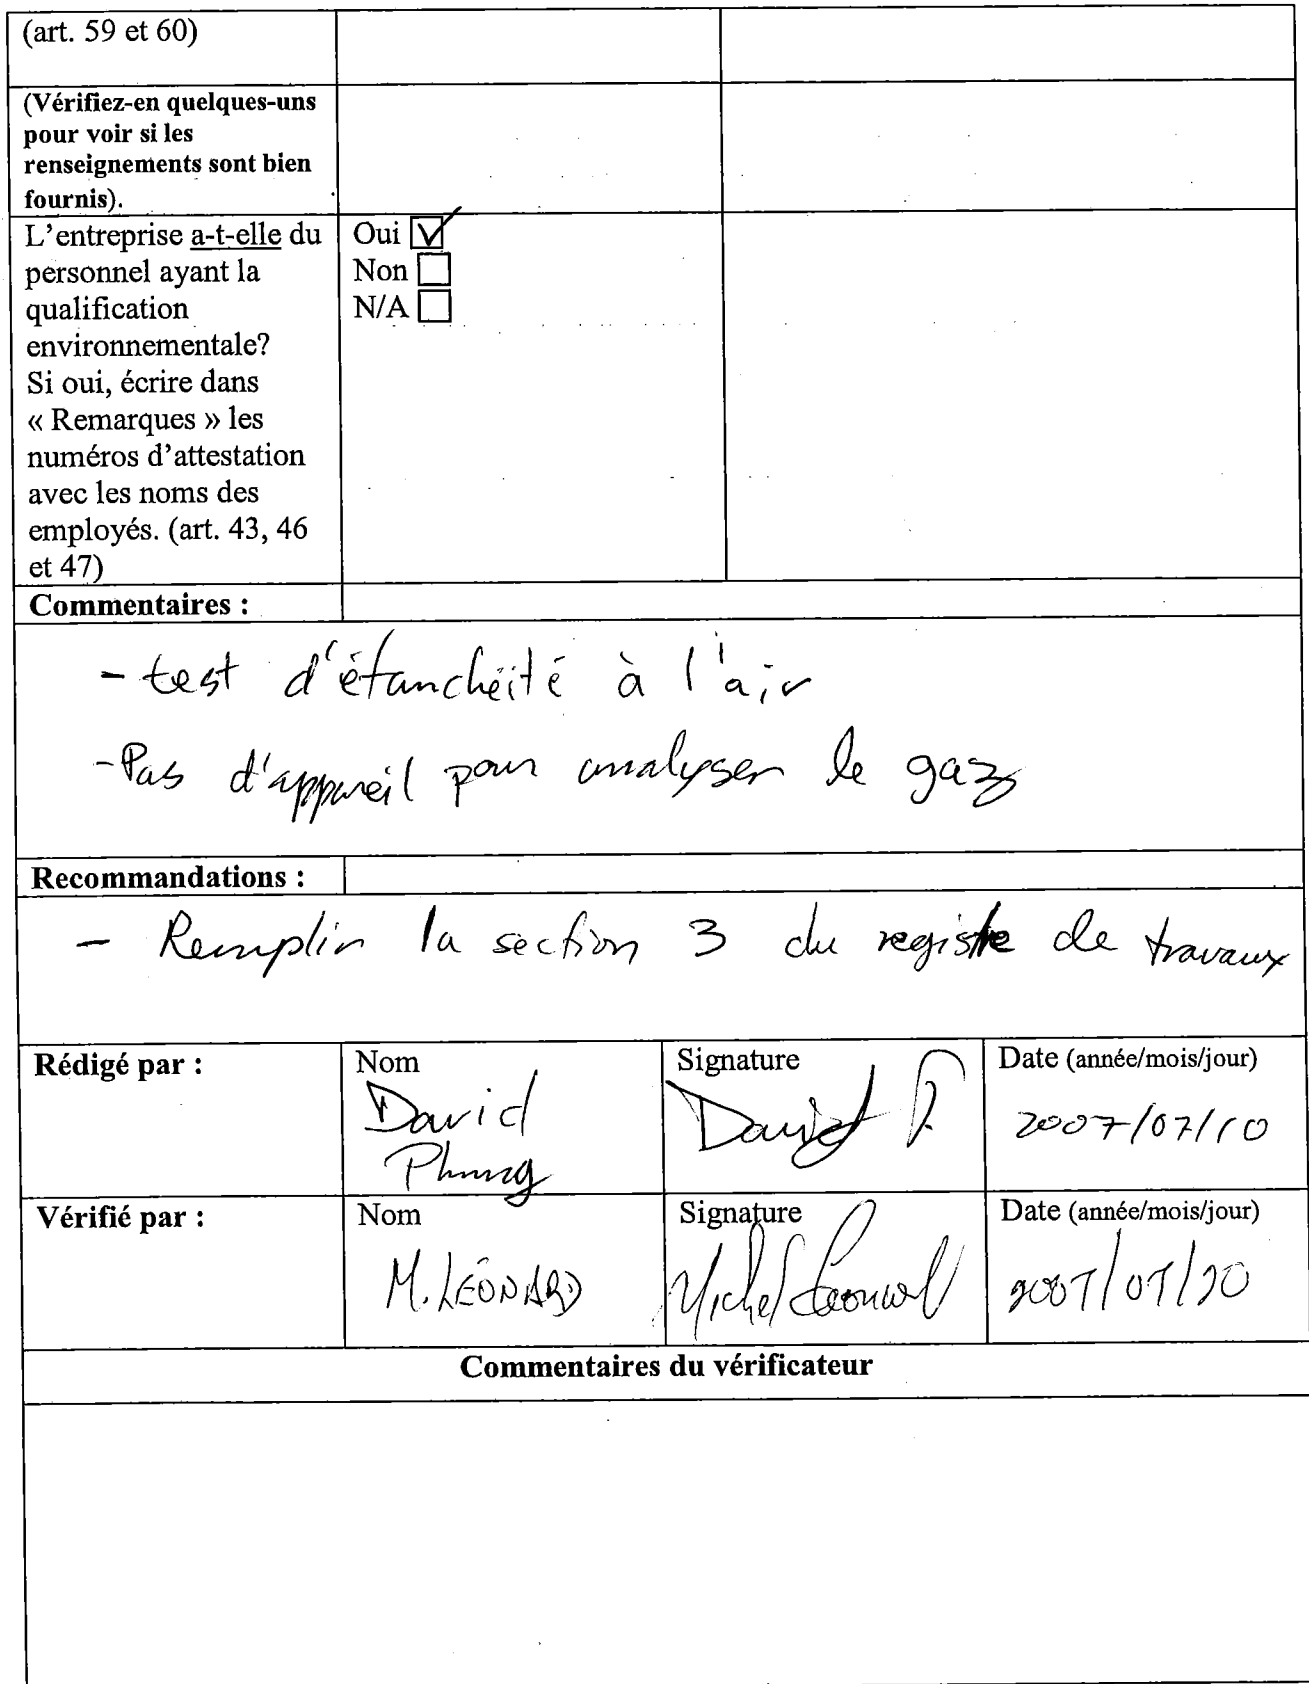 (art. 59 et 60)
(Vérifiez-en quelques-uns
pour voir si les
renseignements sont bien
fournis).
L'entreprise a-t-elle du
personnel ayant la
qualification
environnementale?
Si oui, écrire dans
« Remarques » les
numéros d'attestation
avec les noms des
employés. (art. 43, 46
et 47)
Oui
Non
N/A
Commentaires :
- test d'étanchéité à l'air
- Pas d'appareil pour analyser le gaz
Recommandations :
- Remplir la section 3 du registre de travaux
Rédigé par :
Nom
David
Phung
Signature
David P.
Date (année/mois/jour)
2007/07/10
Vérifié par :
Nom
M. LÉONARD
Signature
Michel Léonard
Date (année/mois/jour)
Commentaires du vérificateur